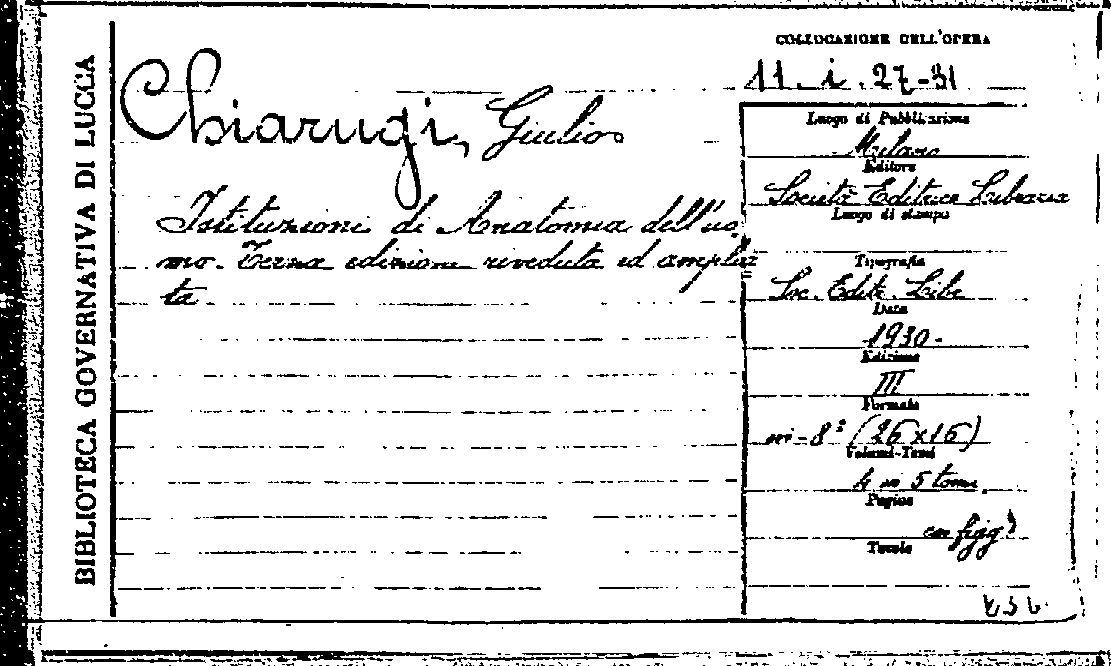 BIBLIOTECA GOVERNATIVA DI LUCCA
COLLOCAZIONE DELL'OPERA
11. i. 27-31
Chiarugi, Giulio
Istituzioni di Anatomia dell'uo-
mo. Terza edizione riveduta ed amplia
ta.
Luogo di Pubblicazione
Milano
Editore
Società Editrice Libraria
Luogo di stampa
Tipografia
Soc. Edit. Libr
Data
1930.
Edizione
III
Formato
in-8° (26x16)
Volumi-Tomi
4 in 5 tomi.
Pagine
con figg
Tavole